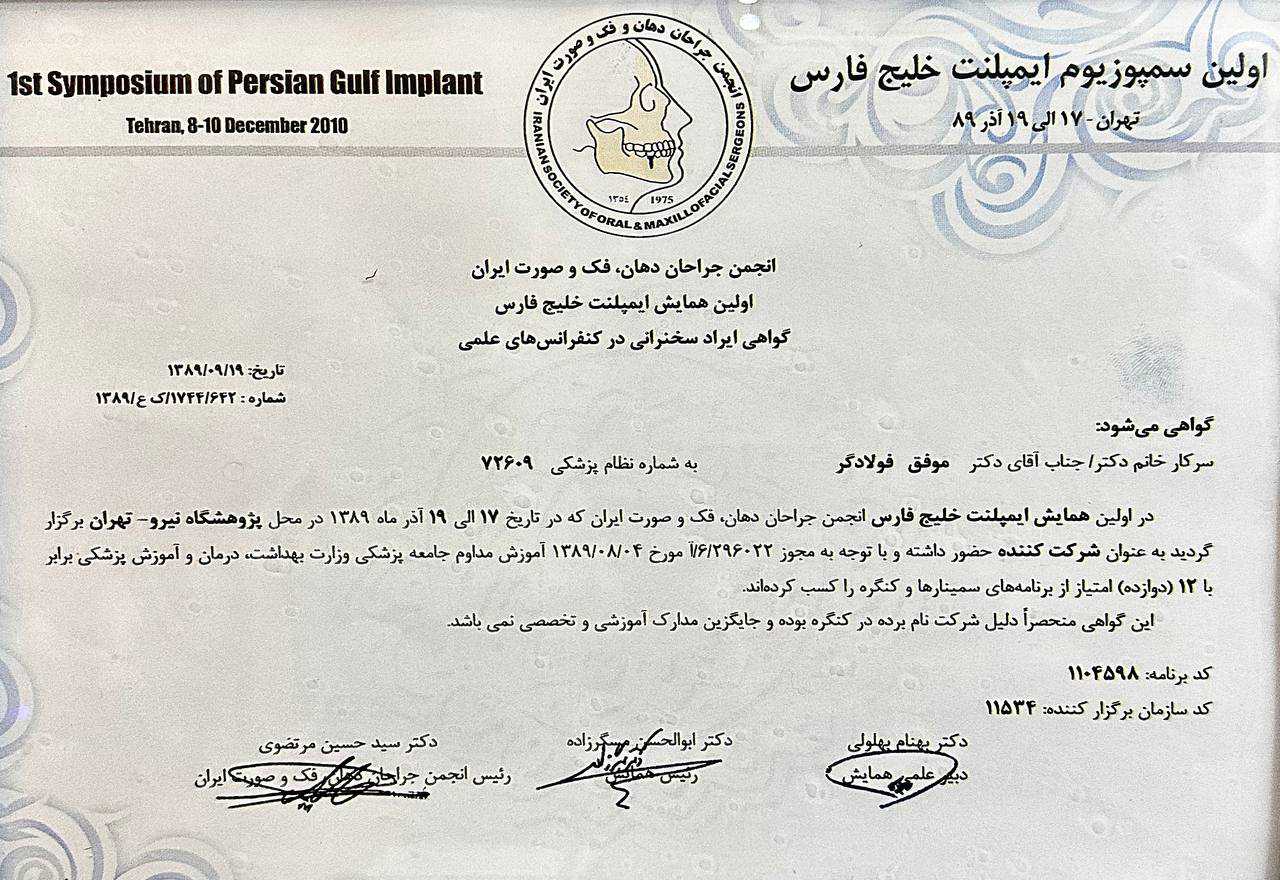 1st Symposium of Persian Gulf Implant
Tehran, 8-10 December 2010
انجمن جراحان دهان و فک و صورت ایران
IRANIAN SOCIETY OF ORAL & MAXILLOFACIAL SERGEONS
۱۳۵٤ 1975
اولین سمپوزیوم ایمپلنت خلیج فارس
تهران - ۱۷ الی ۱۹ آذر ۸۹
انجمن جراحان دهان، فک و صورت ایران
اولین همایش ایمپلنت خلیج فارس
گواهی ایراد سخنرانی در کنفرانس‌های علمی
تاریخ: ۱۳۸۹/۰۹/۱۹
شماره : ۱۷۴۴/۶۴۲/ک ع/۱۳۸۹
گواهی می‌شود:
سرکار خانم دکتر/ جناب آقای دکتر موفق فولادگر به شماره نظام پزشکی ۷۲۶۰۹
در اولین همایش ایمپلنت خلیج فارس انجمن جراحان دهان، فک و صورت ایران که در تاریخ ۱۷ الی ۱۹ آذر ماه ۱۳۸۹ در محل پژوهشگاه نیرو– تهران برگزار
گردید به عنوان شرکت کننده حضور داشته و با توجه به مجوز ۶/۲۹۶۰۲۲/آ مورخ ۱۳۸۹/۰۸/۰۴ آموزش مداوم جامعه پزشکی وزارت بهداشت، درمان و آموزش پزشکی برابر
با ۱۲ (دوازده) امتیاز از برنامه‌های سمینارها و کنگره را کسب کرده‌اند.
این گواهی منحصراً دلیل شرکت نام برده در کنگره بوده و جایگزین مدارک آموزشی و تخصصی نمی باشد.
کد برنامه: ۱۱۰۴۵۹۸
کد سازمان برگزار کننده: ۱۱۵۳۴
دکتر بهنام بهلولی
دبیر علمی همایش
دکتر ابوالحسن مسگرزاده
رئیس همایش
دکتر سید حسین مرتضوی
رئیس انجمن جراحان دهان، فک و صورت ایران